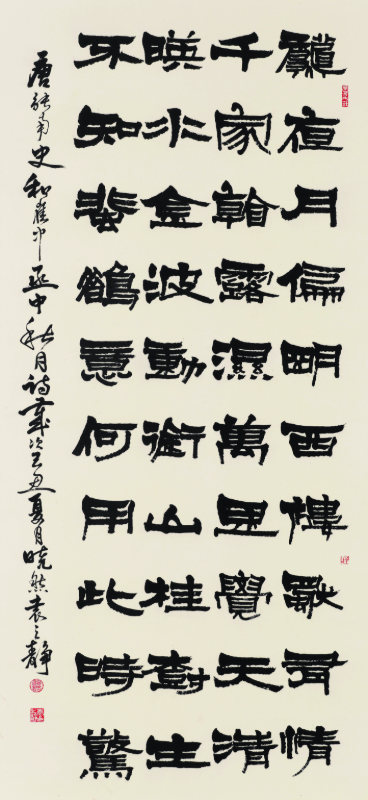 龝夜月偏明西樓獨有情
千家看露濕萬里覺天清
暎水金波動銜山桂樹生
不知蜚鵲意何用此時驚
唐張南史和崔中丞中秋月詩歲次己丑夏月曉然袁之靜